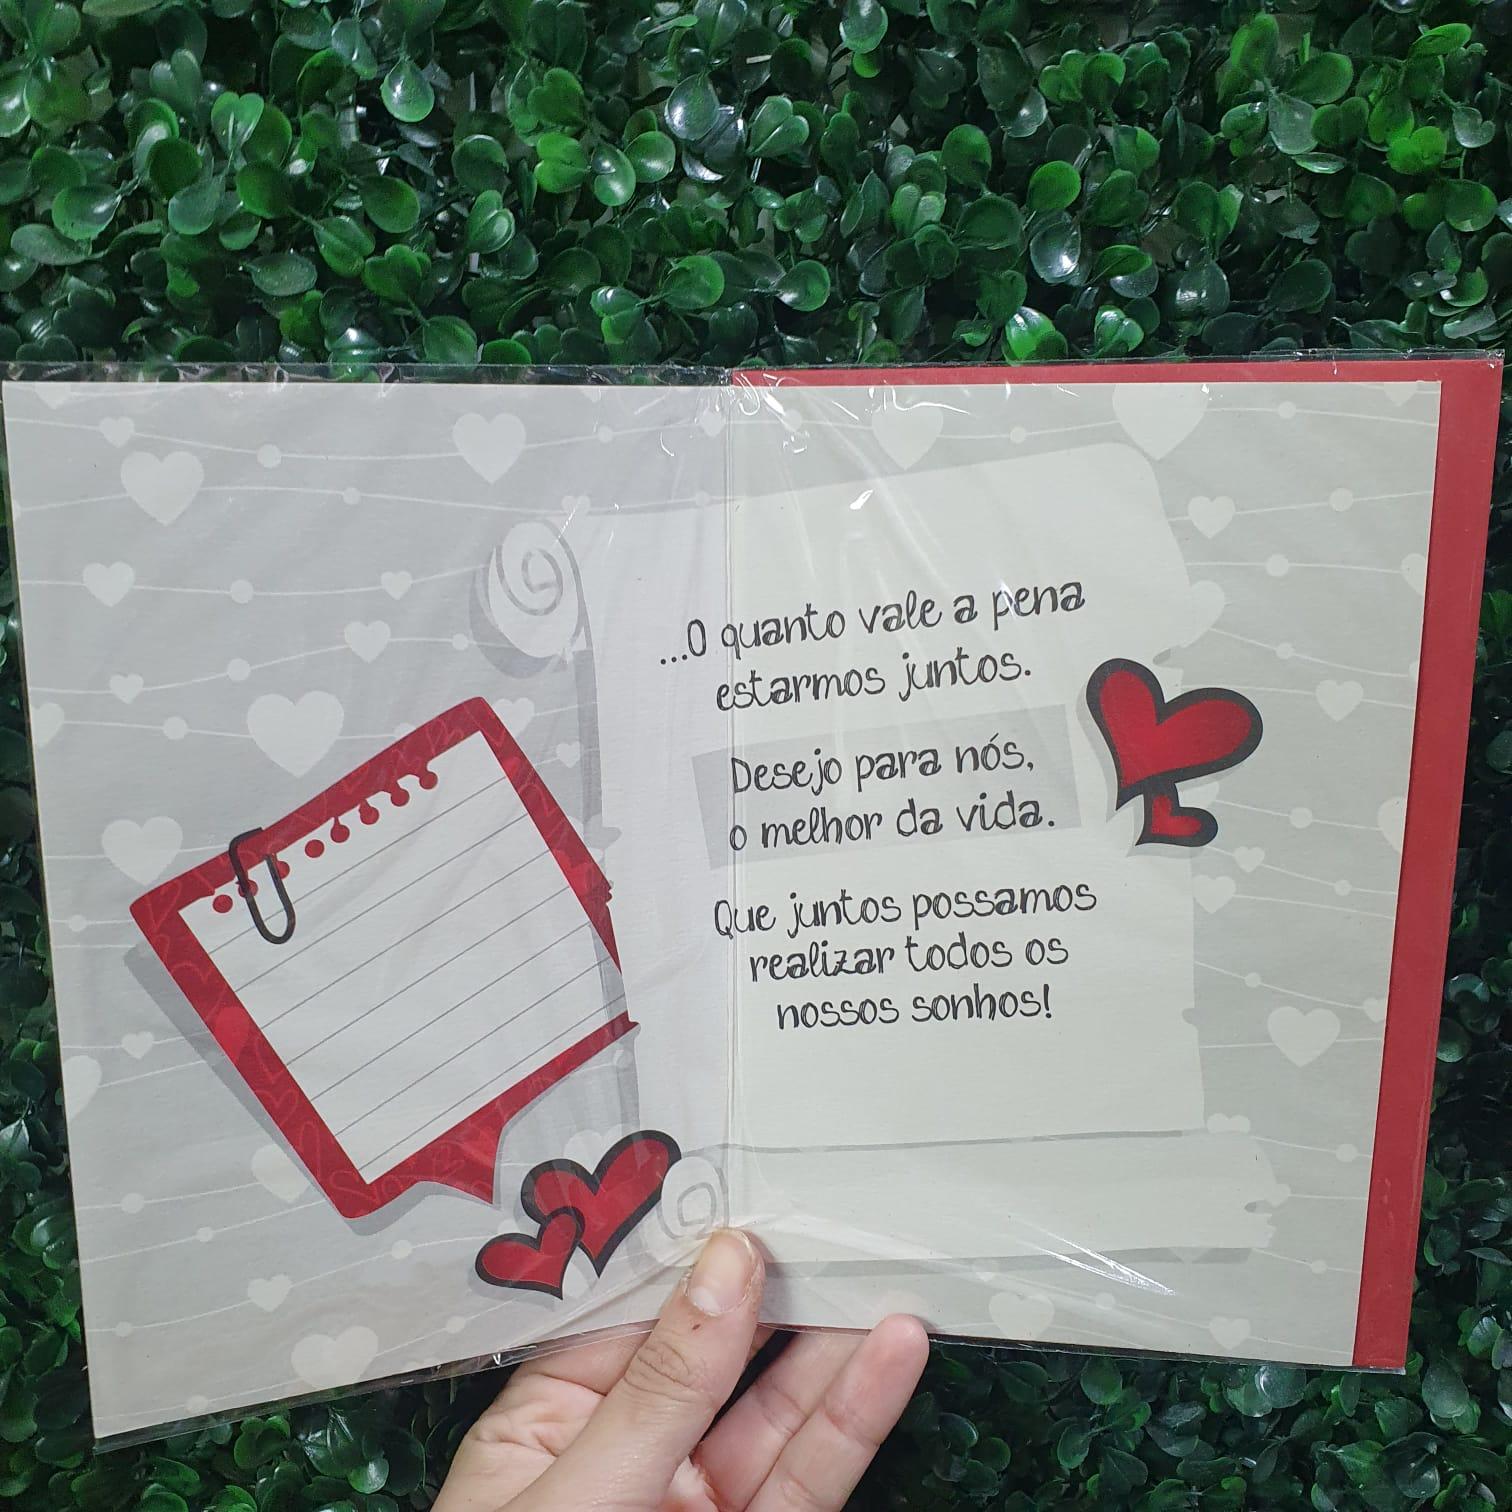 ...O quanto vale a pena
estarmos juntos.
Desejo para nós,
o melhor da vida.
Que juntos possamos
realizar todos os
nossos sonhos!